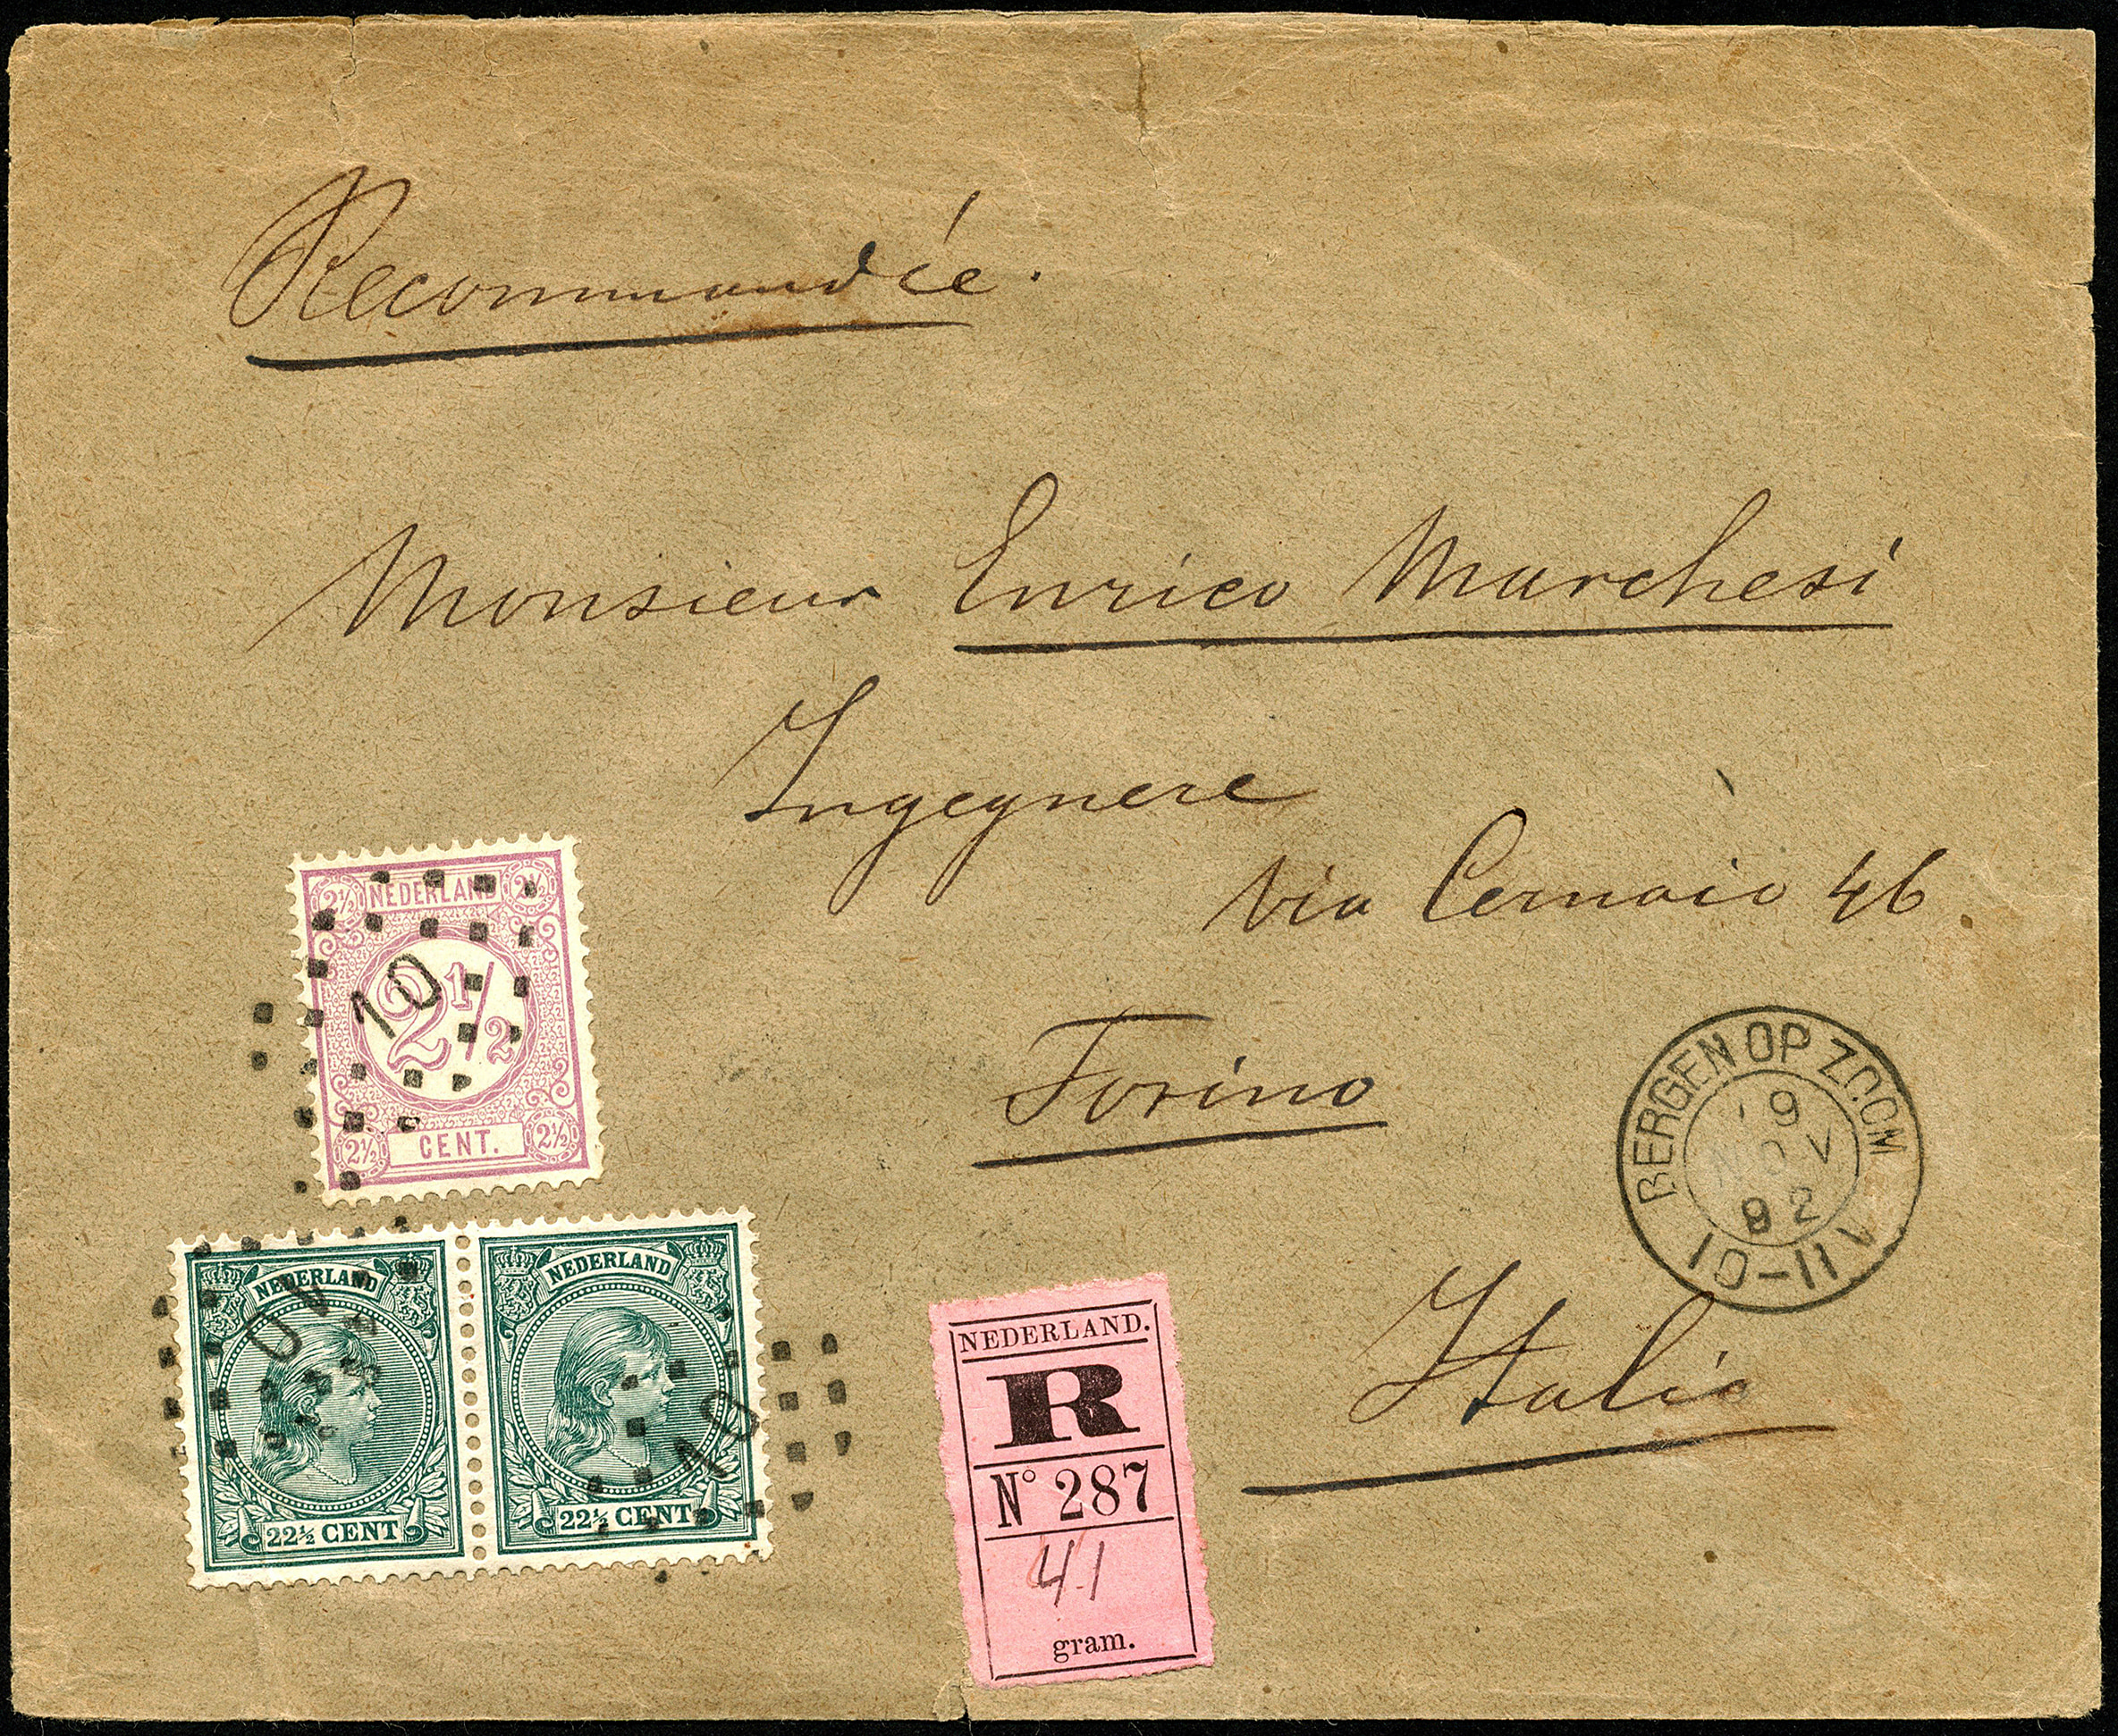 Recommandée.
Monsieur Enrico Marchesi
Ingegnere
via Cernaio 46
Torino
Italie
2½ NEDERLAND 2½
10
2½
2½ CENT. 2½
NEDERLAND
10
22½ CENT
NEDERLAND
10
22½ CENT
NEDERLAND.
R
Nº 287
41
gram.
BERGEN OP ZOOM
9
NOV
92
10-11V